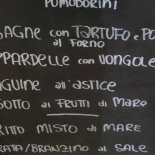 POMODORINI
SAGNE con TARTUFO e PO
al FORNO
PPARDELLE con VONGOLE
NGUINE all'ASTICE
SOTTO ai FRUTTI di MARE
RITTO MISTO di MARE
RATA/BRANZINO al SALE